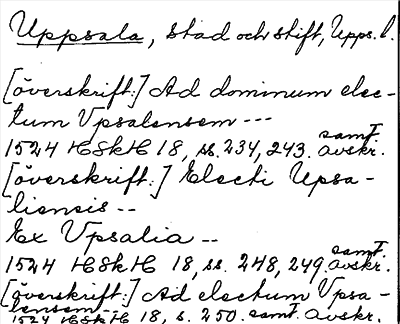 Uppsala, stad och stift, Upps. l.
[överskrift:] Ad dominum elec-
tum Vpsalensem ---
1524 HSkH 18, ss. 234, 243. samt. avskr.
[överskrift:] Electi Upsa-
liensis --
Ex Vpsalia --
1524 HSkH 18, ss. 248, 249. samt. avskr.
[överskrift:] Ad electum Vpsa-
lensem --
1524 HSkH 18, s. 250. samt. avskr.